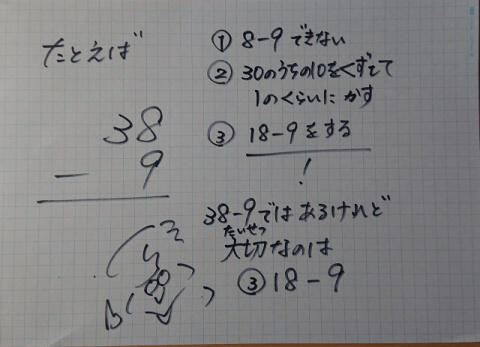 たとえば
38
- 9
① 8-9 できない
② 30のうちの10をくずして
1のくらいに かす
③ 18-9をする
!
38-9では あるけれど
たいせつ
大切なのは
③ 18-9